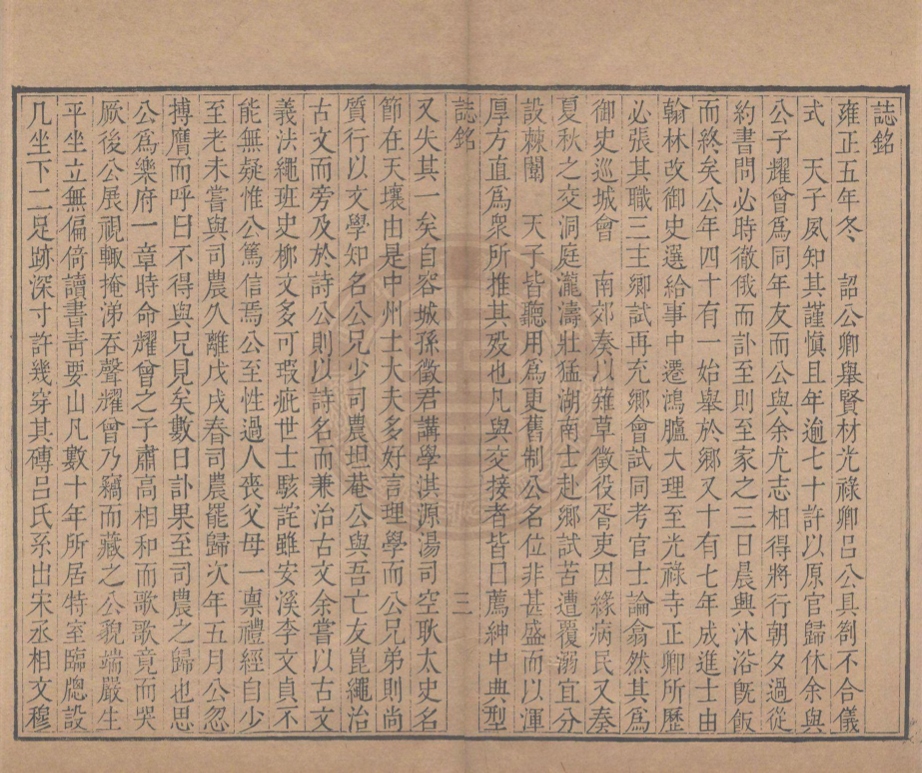 誌銘
雍正五年冬　詔公卿舉賢材光祿卿呂公具劄不合儀
式　天子夙知其謹慎且年逾七十許以原官歸休余與
公子耀曾爲同年友而公與余尤志相得將行朝夕過從
約書問必時徹俄而訃至則至家之三日晨興沐浴旣飯
而終矣公年四十有一始舉於鄉又十有七年成進士由
翰林改御史選給事中遷鴻臚大理至光祿寺正卿所歷
必張其職三主鄉試再充鄉會試同考官士論翕然其爲
御史巡城會　南郊奏以薙草徵役胥吏因緣病民又奏
夏秋之交洞庭瀧濤壯猛湖南士赴鄉試苦遭覆溺宜分
設棘闈　天子皆聽用爲更舊制公名位非甚盛而以渾
厚方直爲衆所推其歿也凡與交接者皆曰薦紳中典型
誌銘　三
又失其一矣自容城孫徵君講學淇源湯司空耿太史名
節在天壤由是中州士大夫多好言理學而公兄弟則尚
質行以文學知名公兄少司農坦菴公與吾亡友崑繩治
古文而旁及於詩公則以詩名而兼治古文余嘗以古文
義法繩班史柳文多可瑕疵世士駭詫雖安溪李文貞不
能無疑惟公篤信焉公至性過人喪父母一稟禮經自少
至老未嘗與司農久離戊戌春司農罷歸次年五月公忽
搏膺而呼曰不得與兄見矣數日訃果至司農之歸也思
公爲樂府一章時命耀曾之子肅高相和而歌歌竟而哭
厥後公展視輒掩涕吞聲耀曾乃竊而藏之公貌端嚴生
平坐立無偏倚讀書靑要山凡數十年所居特室臨牕設
几坐下二足跡深寸許幾穿其磚呂氏系出宋丞相文穆